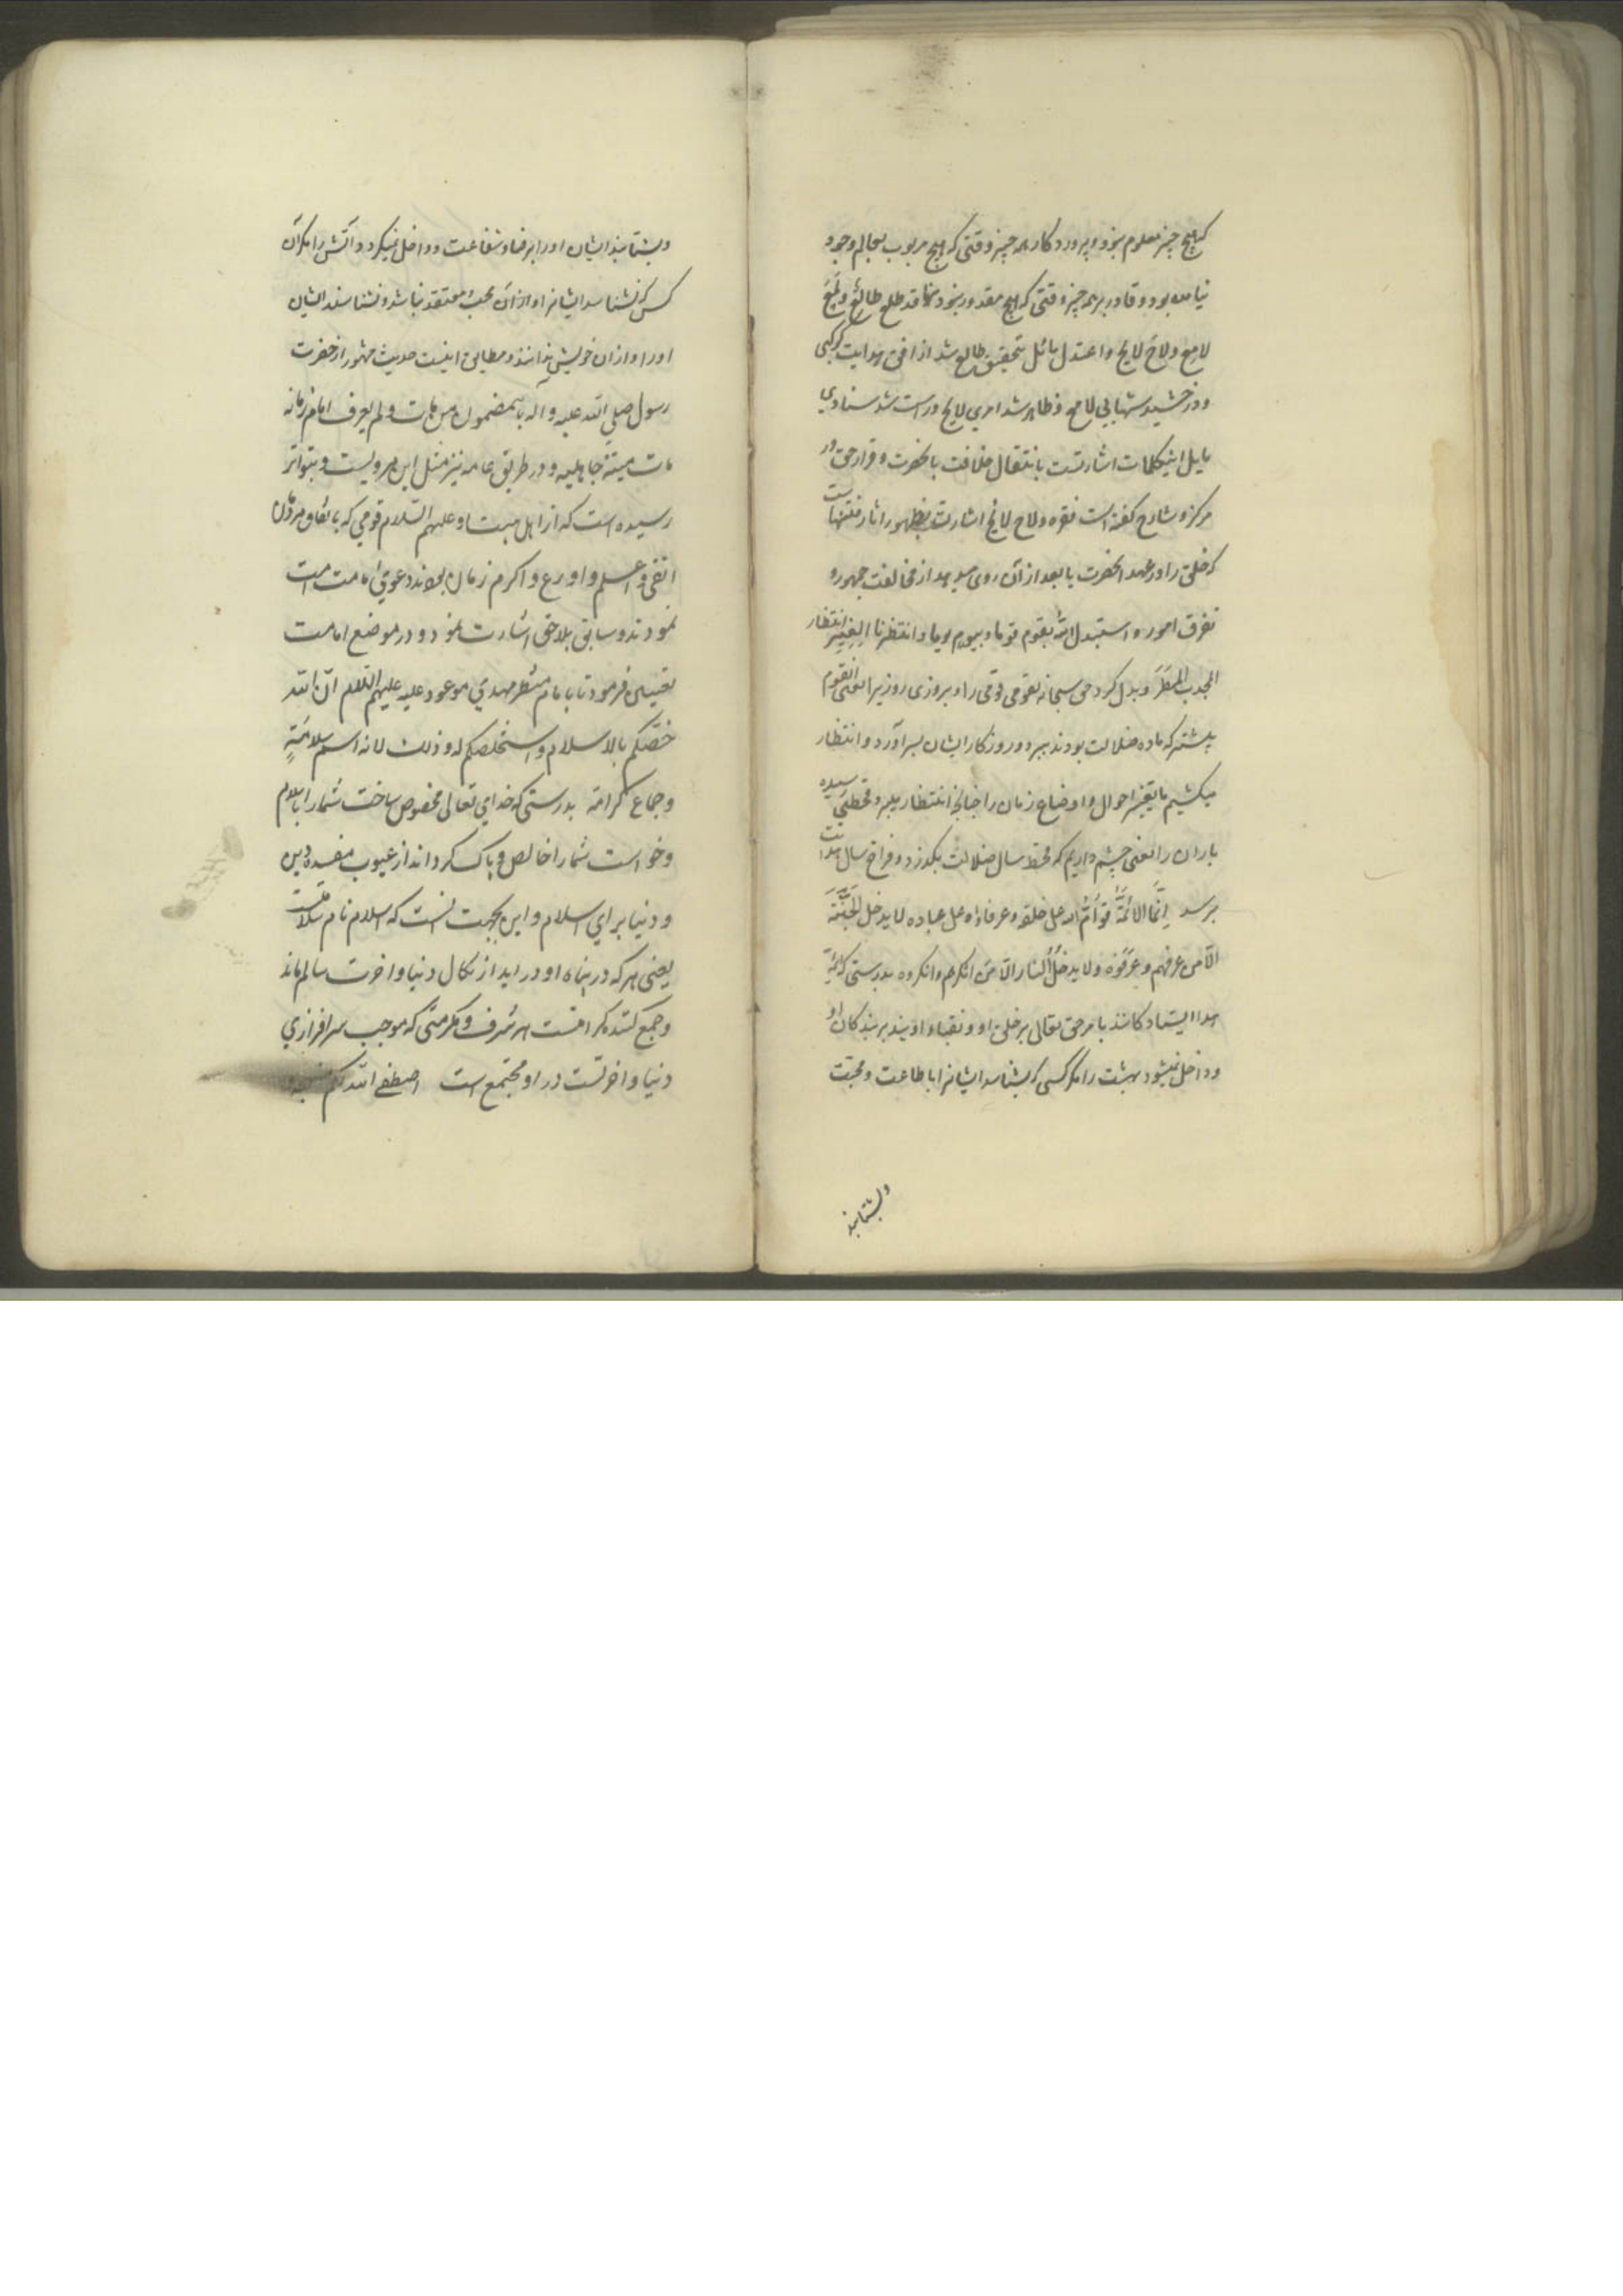 که هیچ چیز معلوم نبود و پروردگار هر چیز وقتی که هیچ مربوب بعالم وجود
نیامده بود و قادر بر همه چیز وقتی که هیچ مقدور نبود منها قد طلع طالع و لمع
لامع ولاح لایح و اعتدل مائل بتحقیق طالع شد از افق هدایت کوکبی
و درخشید شهابی لامع و ظاهر شد امری لایح و راست شد ستادی
مایل اینکلمات اشارتست بانتقال خلافت بانحضرت و قرار حق در
مرکز و شارح کفته است فقره ولاح لایح اشارتست بظهور اثار فتنها
که خلق را در عهد انحضرت یا بعد از آن روی میدهد از مخالفت جمهور و
تفرق امور و استبدل الله بقوم قوما و بیوم یوما و انتظرنا الغیر انتظار
المجدب المطر و بدل کرد حق سبحانه بقومی قومی را و بروزی روزیرا یعنی القوم
پیشتر که ماده ضلالت بودند ببرد و روزکار ایشان بسر آورد و انتظار
میکشیم ما تغیر احوال و اوضاع زمان را چنانچه انتظار میبرد قحطی رسیده
باران را یعنی چشم داریم که قحط سال ضلالت بگذرد و فراخ سال هدایت
برسد انما الائمة قوام الله علی خلقه و عرفاؤه علی عباده لا یدخل الجنة
الا من عرفهم و عرفوه ولا یدخل النار الا من انکرهم و انکروه بدرستی که ائمه
هدا ایستادکانند بامر حق تعالی بر خلق او و نقباء اویند بر بندکان او
و داخل نمیشود بهشت را مکر کسی که بشناسد ایشانرا با طاعت و محبت
وبشناسند
وبشناسند ایشان اورا برضا و شفاعت و داخل نمیکردد آتش را مکر آن
کس که نشناسد ایشانرا و از آن محب و معتقد نباشد و نشناسند ایشان
اورا و از ان خویش ندانند و مطابق اینست حدیث مشهور از حضرت
رسول صلی الله علیه و آله باینمضمون من مات ولم یعرف امام زمانه
مات میتة جاهلیه و در طریق عامه نیز مثل این مرویست و بتواتر
رسیده است که از اهل بیت او علیهم السلام قومی که باتفاق مردمان
اتقی و اعلم و اورع و اکرم زمان بودند دعوی امامت امت
نمودند و سابق بلاحق اشارت نمود و در موضع امامت
تعیین فرمود تا بامام منتظر مهدی موعود علیه علیهم السلام ان الله
خصکم بالاسلام و استخلصکم له و ذلک لانه اسم سلامة
و جماع کرامة بدرستی که خدای تعالی مخصوص ساخت شما را باسلام
و خواست شما را خالص و پاک کرداند از عیوب مفسده دین
و دنیا برای اسلام و این بجهت آنست که اسلام نام سلامتست
یعنی هر که در پناه او در اید از نکال دنیا و اخرت سالم ماند
و جمع کننده کرامتست هر شرف و مکرمتی که موجب سرافرازی
دنیا و اخرتست در او مجتمع است اصطفی الله لکم منهجه